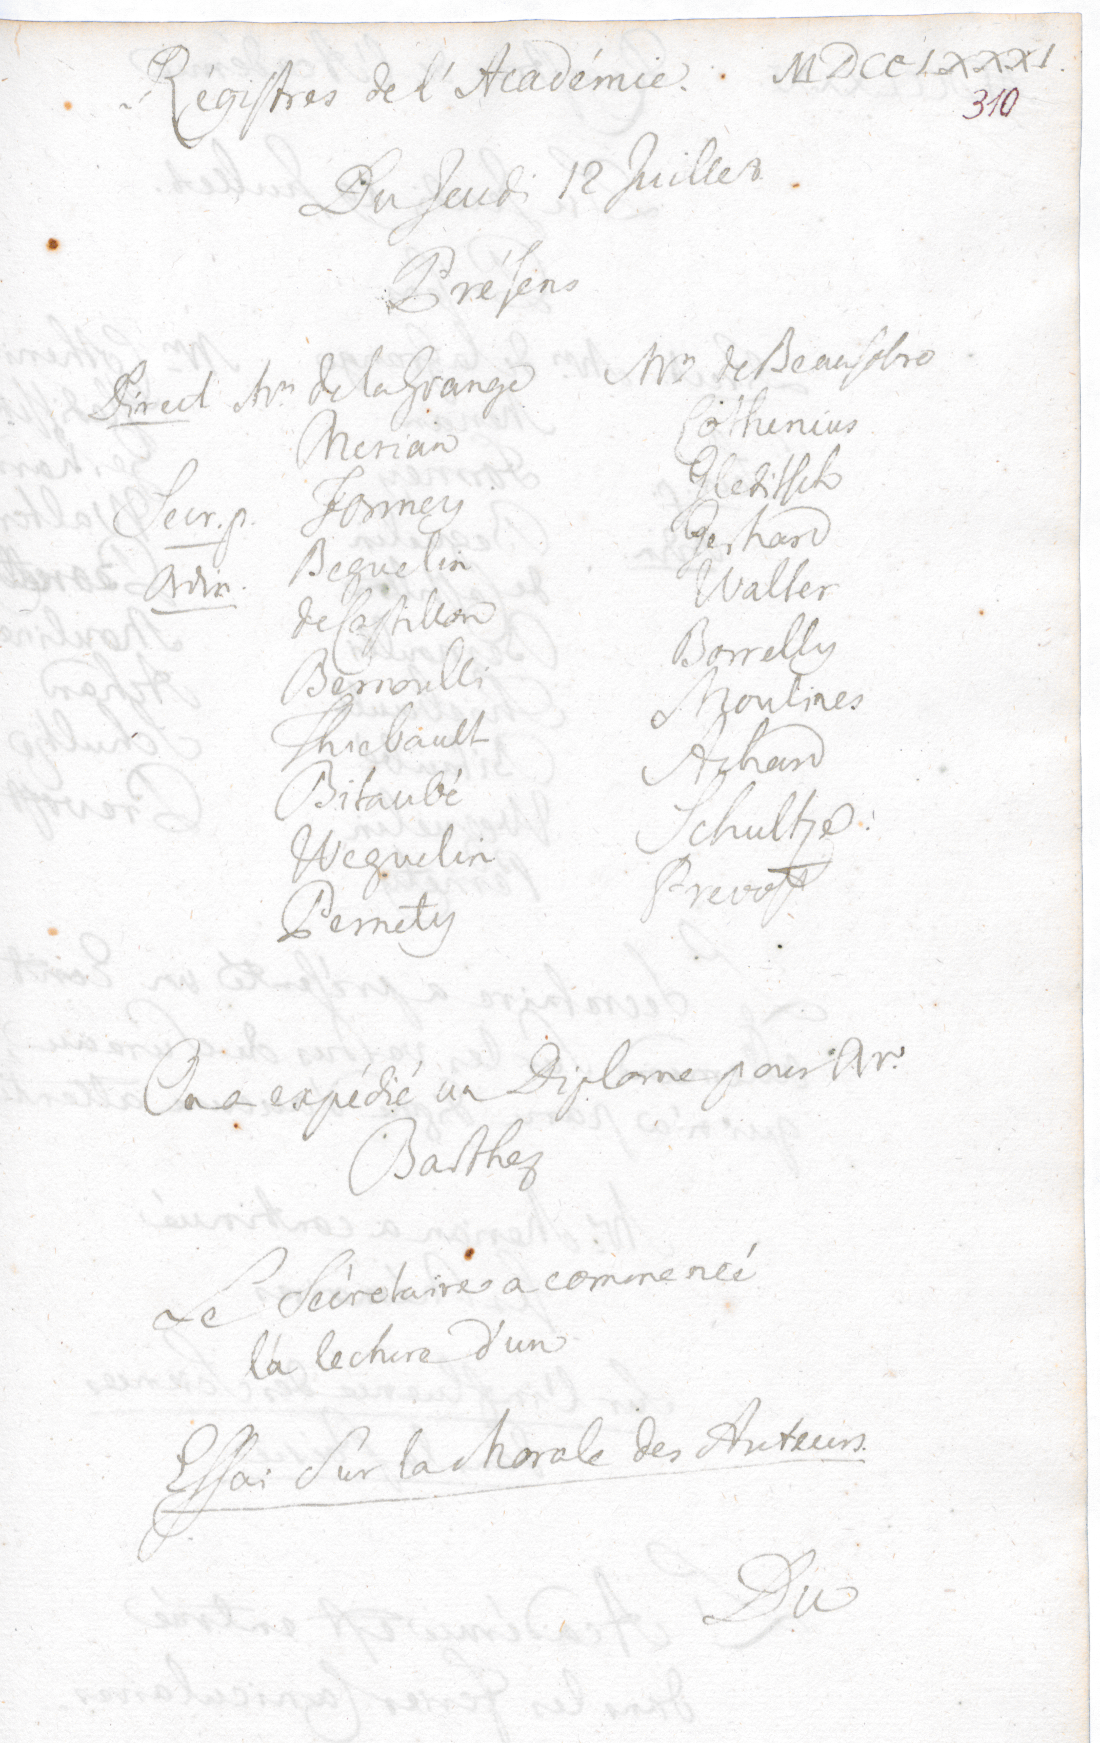 Régistres de l'Académie. MDCCLXXXI.
310
Du Jeudi 12 Juillet.
Présens
Direct Mrs de la Grange Mrs de Beausobre
Merian Cothenius
Gleditsch
Secr. p. Formey Gerhard
Adm. Beguelin Walter
de Castillon Borrelly
Bernoulli Moulines
Thiebault Achard
Bitaubé Schultze.
Weguelin Prevost
Pernety
On a expédié un Diplome pour Mr.
Barthez
Le Sécretaire a commencé
la lecture d'un
Essai sur la Morale des Auteurs.
Du